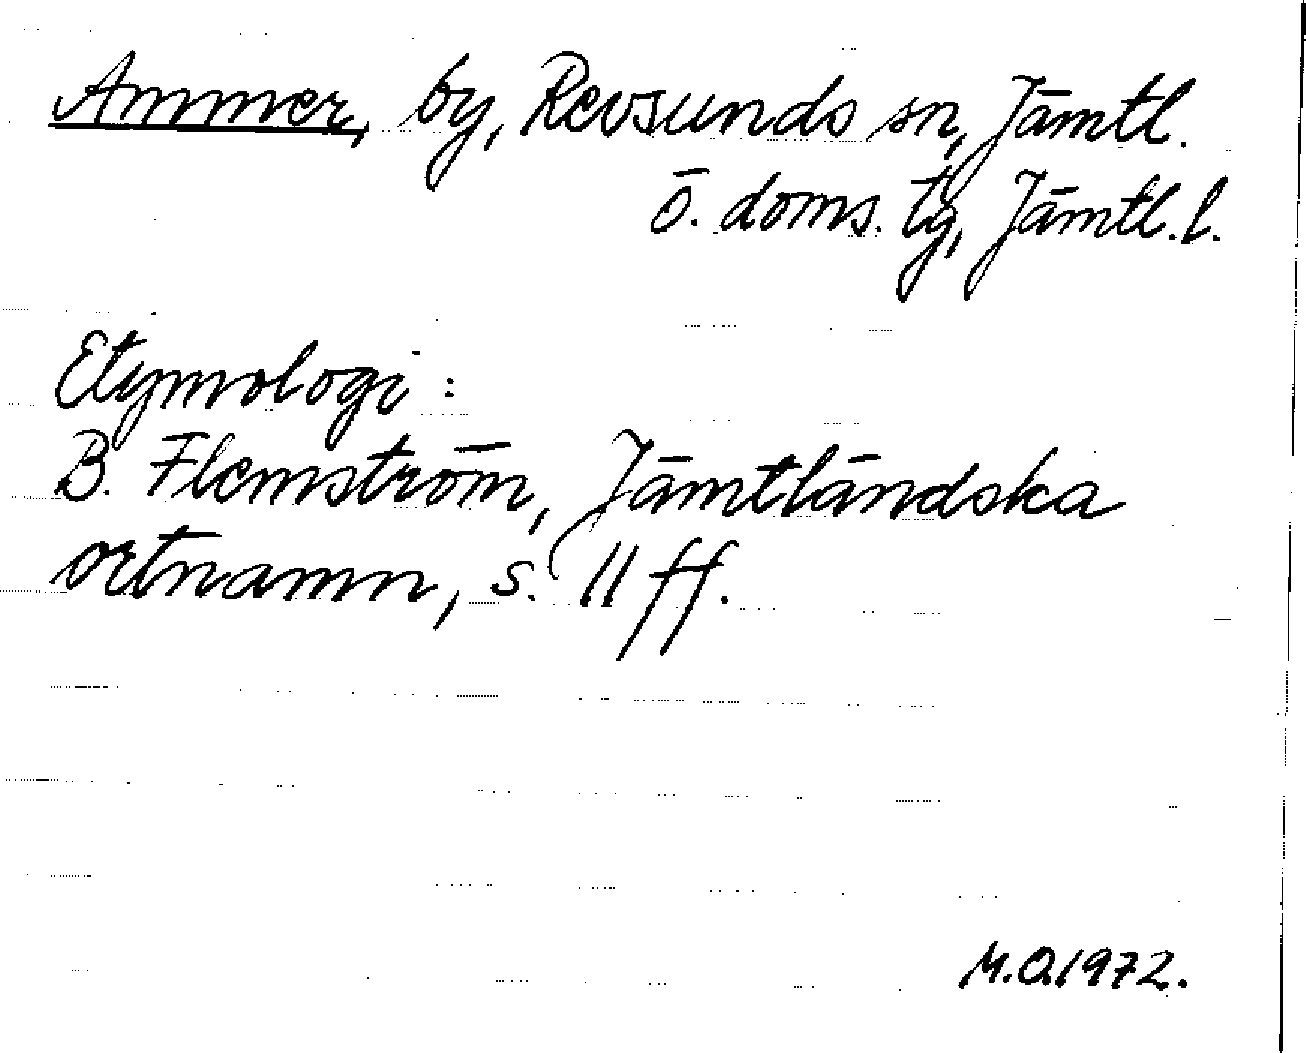 Ammer, by, Revsunds sn, Jämtl.
ö. doms. tg, Jämtl. l.
Etymologi:
B. Flemström, Jämtländska
ortnamn, s. 11 ff.
M.O.1972.